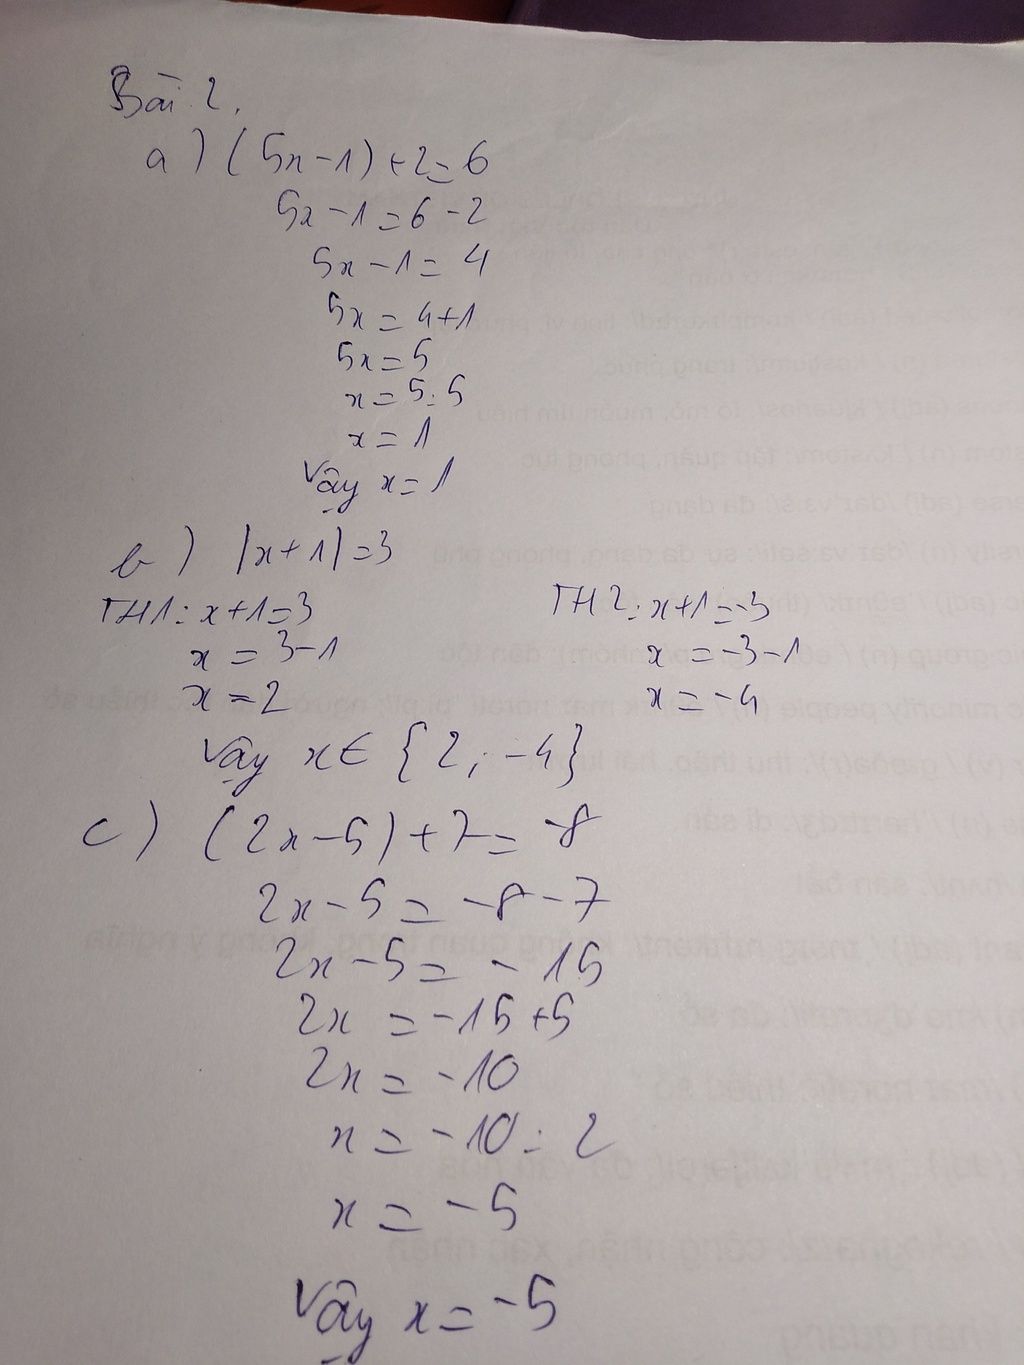 Bài 2.
a) (5x-1)+2=6
5x-1=6-2
5x-1=4
5x=4+1
5x=5
x=5:5
x=1
Vậy x=1
b) |x+1|=3
TH1: x+1=3
x=3-1
x=2
TH2: x+1=-3
x=-3-1
x=-4
Vậy x∈{2;-4}
c) (2x-5)+7=-8
2x-5=-8-7
2x-5=-15
2x=-15+5
2x=-10
x=-10:2
x=-5
Vậy x=-5